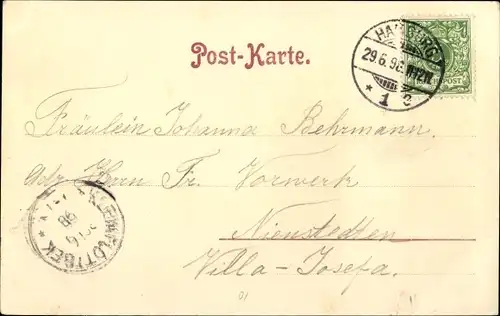 Post-Karte.
HAMBURG
29.6.98.
* 1 *
POST
Fräulein Johanna Behrmann.
Adr. Herrn Fr. Vorwerk
Nienstedten
Villa-Josefa.
KLEIN FLOTTBEK
98